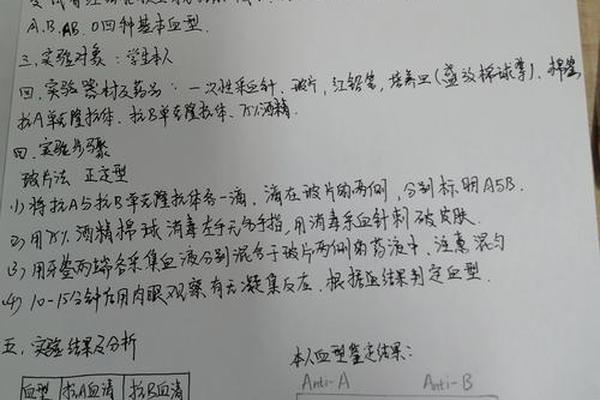 A.B.AB.O四种基本血型.
三.实验对象：学生本人
四.实验器材及药品：一次性采血针.玻片,红铅笔,培养皿(盛放棉球等).棉签
抗A单克隆抗体.抗B单克隆抗体.75%酒精.
四.实验步骤
玻片法 正定型
1)将抗A与抗B单克隆抗体各一滴,滴在玻片的两侧,分别标明A与B.
2)用75%酒精棉球消毒左手无名手指,用消毒采血针刺破皮肤.
3)用牙签两端各采集血液分别混合于玻片两侧的药液中,注意混匀
4)10-15分钟后用肉眼观察有无凝集反应.根据血结果判定血型.
五.实验结果及分析
本人血型鉴定结果：
Anti-A Anti-B
血型 抗A血清 抗B血清